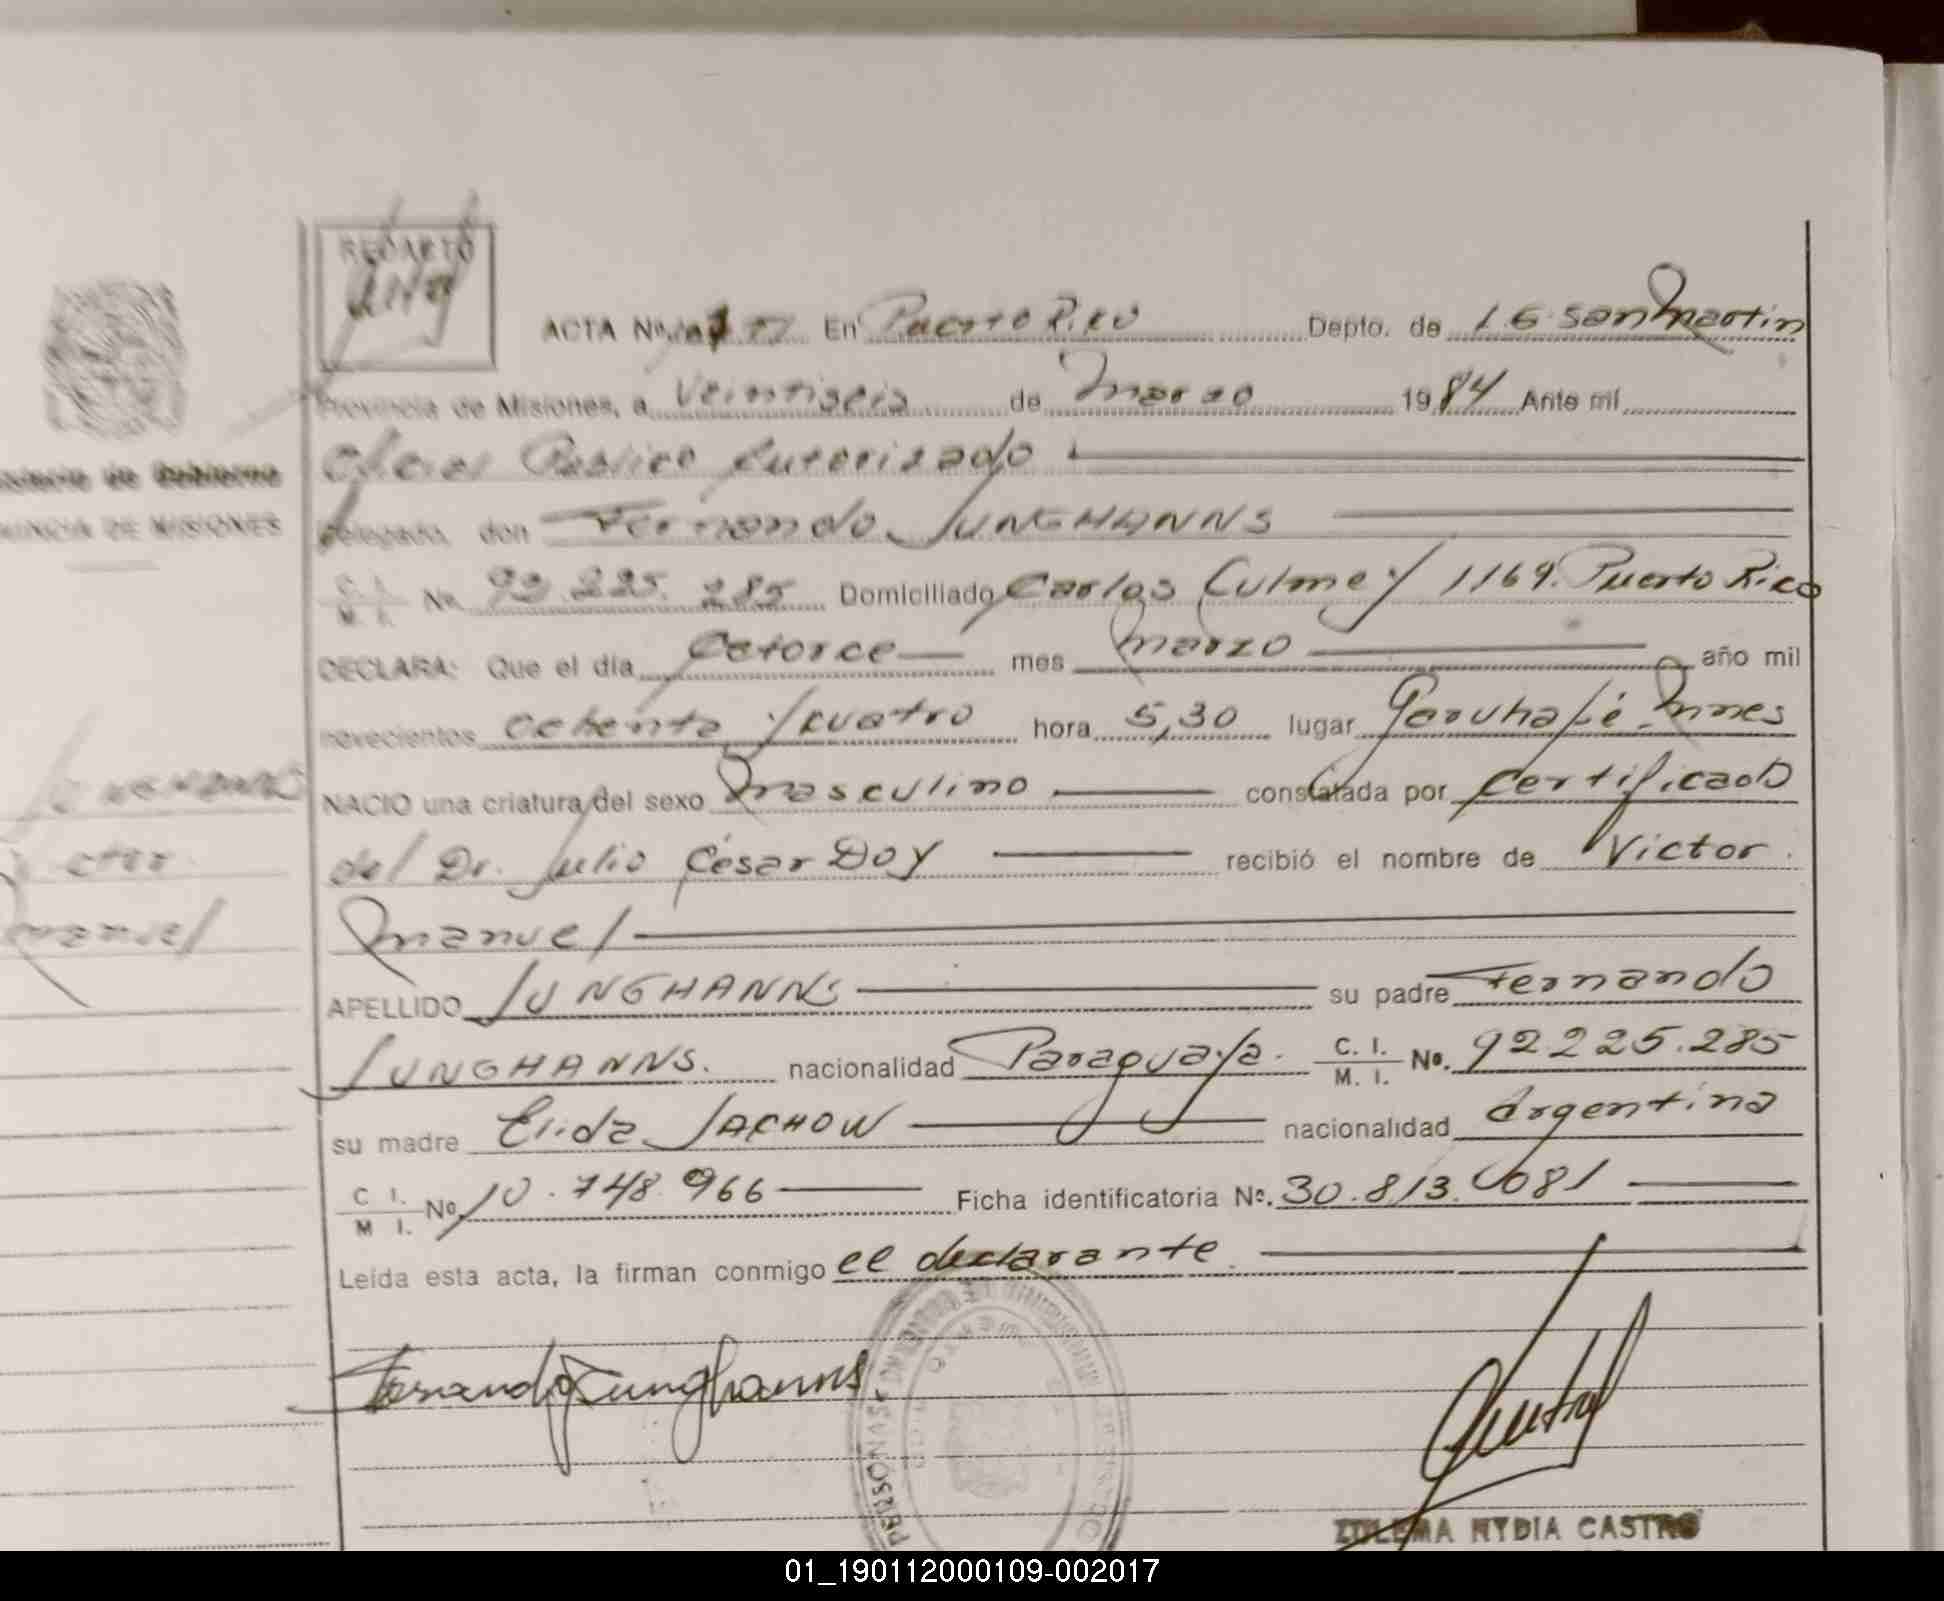 REGARTO
ACTA Nº En Puerto Rico Depto. de L.G. San Martin
Provincia de Misiones, a Veintiseis de Marzo 1984 Ante mí
Oficial Público Autorizado
Delegado, don Fernando JUNGHANNS
C. I. M. I. Nº 92.225.285 Domiciliado Carlos Culmey 1169. Puerto Rico
DECLARA: Que el día Catorce mes Marzo año mil
novecientos ochenta y cuatro hora 5,30 lugar Garuhapé Mnes
NACIO una criatura del sexo Masculino constatada por certificado
del Dr. Julio César DOY recibió el nombre de Victor
Manuel
APELLIDO JUNGHANNS su padre Fernando
JUNGHANNS. nacionalidad Paraguaya. C. I. M. I. Nº. 92.225.285
su madre Elida JACHOW nacionalidad Argentina
C I. M I. Nº 10.748.966 Ficha identificatoria Nº. 30.813.081
Leída esta acta, la firman conmigo el declarante
Fernando Junghanns
de Gobierno
DE MISIONES
JUNGHANNS
Manuel
PERSONAS
ZULEMA NYDIA CASTRO
01_190112000109-002017